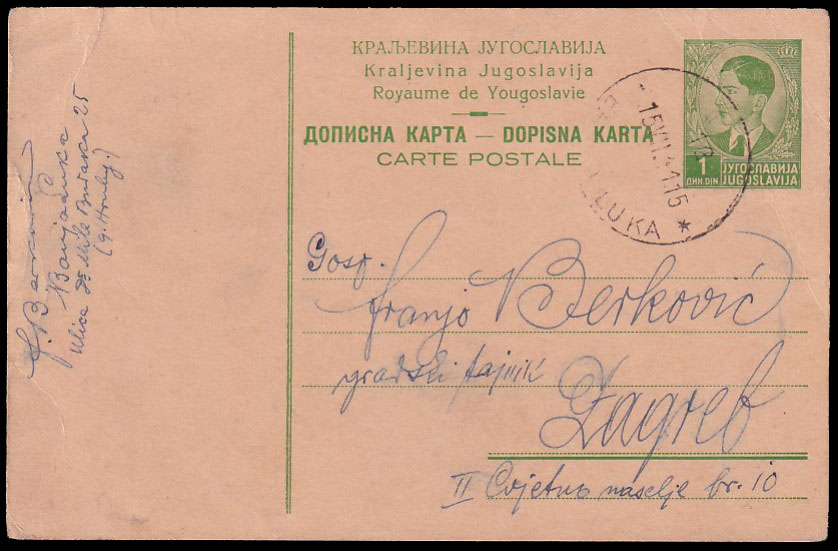 КРАЉЕВИНА ЈУГОСЛАВИЈА
Kraljevina Jugoslavija
Royaume de Yougoslavie
ДОПИСНА КАРТА — DOPISNA KARTA
CARTE POSTALE
1
ДИН DIN
ЈУГОСЛАВИЈА
JUGOSLAVIJA
LUKA *
Gosp.
Franjo Berković
gradski tajnik
Zagreb
II Cvjetno naselje br. 10
Banjaluka
ulica Dr Mile 25